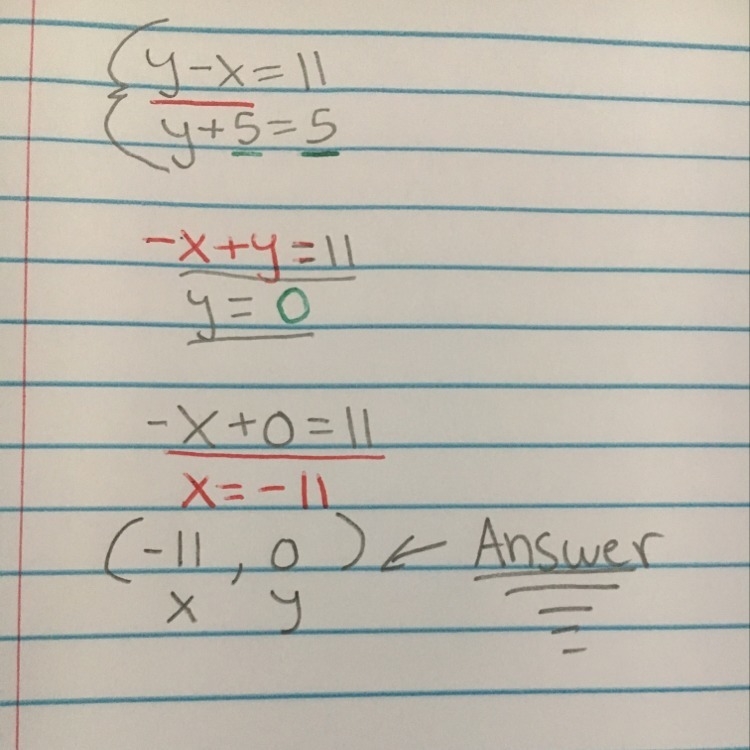 y-x=11
y+5=5
-x+y=11
y=0
-x+0=11
x=-11
(-11, 0) ← Answer
x y